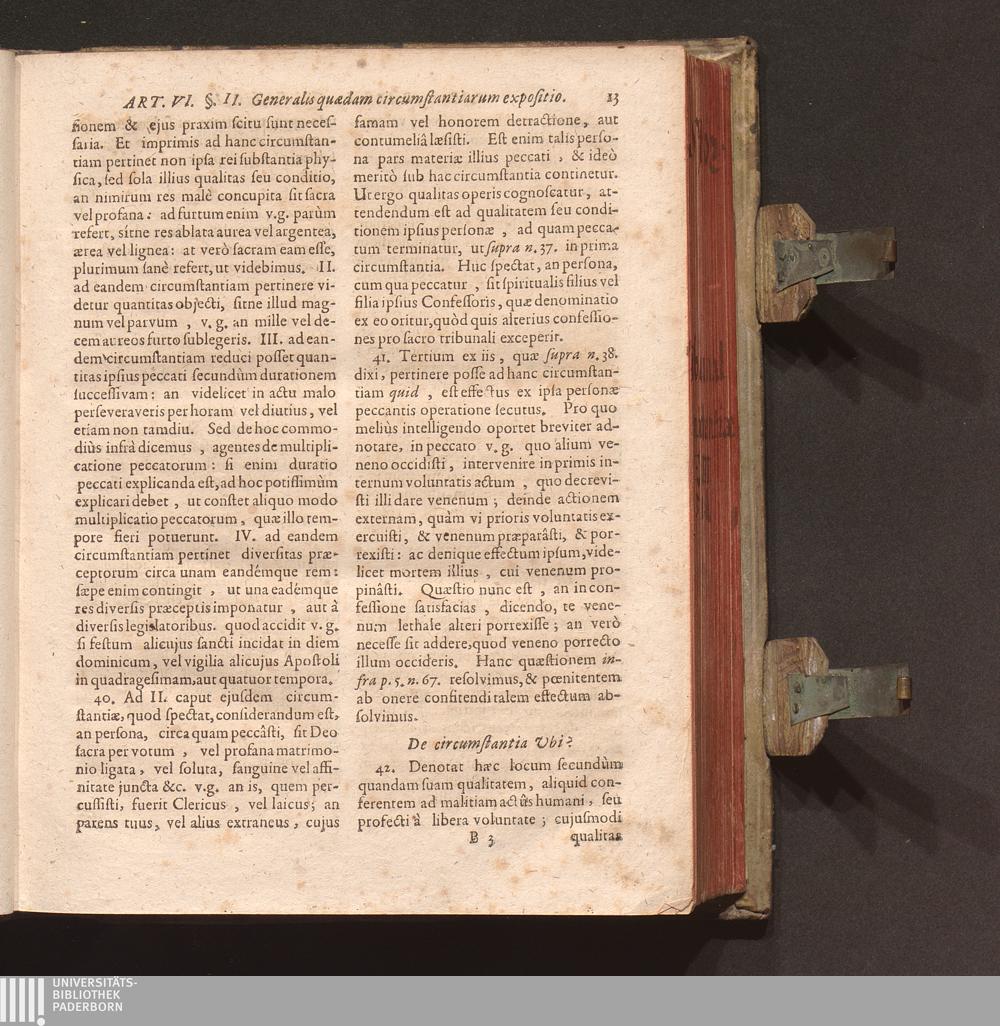 ART. VI. §. II. Generalis quædam circumſtantiarum expoſitio. 13
ſionem & ejus praxim ſcitu ſunt neceſ-
ſaria. Et imprimis ad hanc circumſtan-
tiam pertinet non ipſa rei ſubſtantia phy-
ſica, ſed ſola illius qualitas ſeu conditio,
an nimirum res malè concupita ſit ſacra
vel profana: ad furtum enim v.g. parùm
refert, ſitne res ablata aurea vel argentea,
ærea vel lignea: at verò ſacram eam eſſe,
plurimum ſanè refert, ut videbimus. II.
ad eandem circumſtantiam pertinere vi-
detur quantitas objecti, ſitne illud mag-
num vel parvum, v. g. an mille vel de-
cem aureos furto ſublegeris. III. ad ean-
dem circumſtantiam reduci poſſet quan-
titas ipſius peccati ſecundùm durationem
ſucceſſivam: an videlicet in actu malo
perſeveraveris per horam vel diutius, vel
etiam non tamdiu. Sed de hoc commo-
diùs infrà dicemus, agentes de multipli-
catione peccatorum: ſi enim duratio
peccati explicanda eſt, ad hoc potiſſimùm
explicari debet, ut conſtet aliquo modo
multiplicatio peccatorum, quæ illo tem-
pore fieri potuerunt. IV. ad eandem
circumſtantiam pertinet diverſitas præ-
ceptorum circa unam eandémque rem:
ſæpe enim contingit, ut una eadémque
res diverſis præceptis imponatur, aut à
diverſis legislatoribus. quod accidit v. g.
ſi feſtum alicujus ſancti incidat in diem
dominicum, vel vigilia alicujus Apoſtoli
in quadrageſimam, aut quatuor tempora.
40. Ad II. caput ejuſdem circum-
ſtantiæ, quod ſpectat, conſiderandum eſt,
an perſona, circa quam peccâſti, ſit Deo
ſacra per votum, vel profana matrimo-
nio ligata, vel ſoluta, ſanguine vel affi-
nitate juncta &c. v.g. an is, quem per-
cuſſiſti, fuerit Clericus, vel laicus; an
parens tuus, vel alius extraneus, cujus
famam vel honorem detractione, aut
contumeliâ læſiſti. Eſt enim talis perſo-
na pars materiæ illius peccati, & ideò
meritò ſub hac circumſtantia continetur.
Ut ergo qualitas operis cognoſcatur, at-
tendendum eſt ad qualitatem ſeu condi-
tionem ipſius perſonæ, ad quam pecca-
tum terminatur, ut ſupra n. 37. in prima
circumſtantia. Huc ſpectat, an perſona,
cum qua peccatur, ſit ſpiritualis filius vel
filia ipſius Confeſſoris, quæ denominatio
ex eo oritur, quòd quis alterius confeſſio-
nes pro ſacro tribunali exceperit.
41. Tertium ex iis, quæ ſupra n. 38.
dixi, pertinere poſſe ad hanc circumſtan-
tiam quid, eſt effectus ex ipſa perſonæ
peccantis operatione ſecutus. Pro quo
meliùs intelligendo oportet breviter ad-
notare, in peccato v. g. quo alium ve-
neno occidiſti, intervenire in primis in-
ternum voluntatis actum, quo decrevi-
ſti illi dare venenum; deinde actionem
externam, quàm vi prioris voluntatis ex-
ercuiſti, & venenum præparâſti, & por-
rexiſti: ac denique effectum ipſum, vide-
licet mortem illius, cui venenum pro-
pinâſti. Quæſtio nunc eſt, an in con-
feſſione ſatisfacias, dicendo, te vene-
num lethale alteri porrexiſſe; an verò
neceſſe ſit addere, quod veneno porrecto
illum occideris. Hanc quæſtionem in-
fra p. 5. n. 67. reſolvimus, & pœnitentem
ab onere confitendi talem effectum ab-
ſolvimus.
De circumſtantia Ubi?
42. Denotat hæc locum ſecundùm
quandam ſuam qualitatem, aliquid con-
ferentem ad malitiam actûs humani, ſeu
profecti à libera voluntate; cujuſmodi
B 3 qualitas
UNIVERSITÄTS-
BIBLIOTHEK
PADERBORN